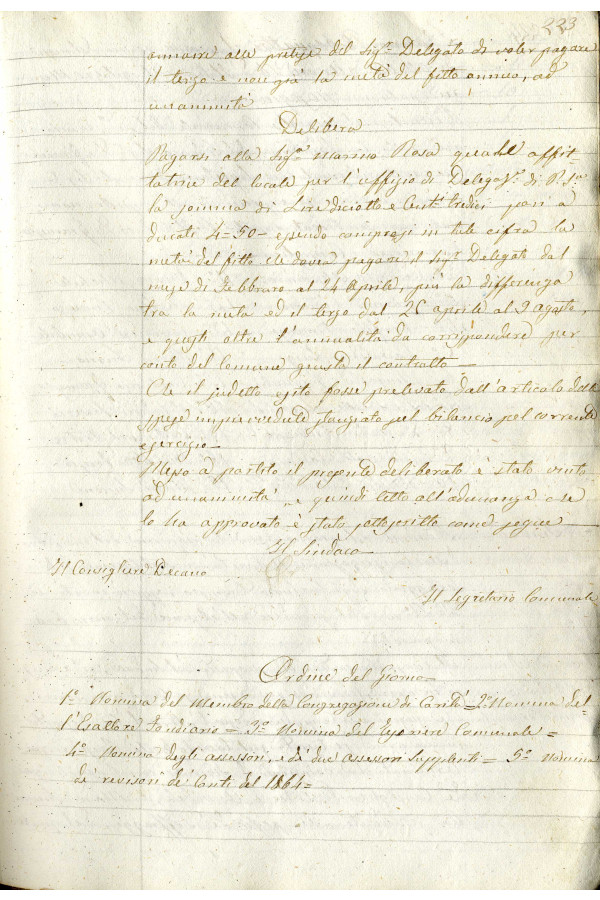 223
annuire alle pretese del Sig.r Delegato di voler pagare
il terzo e non già la metà del fitto annuo, ad
unanimità
Delibera
Pagarsi alla Sig.ra Marino Rosa qual affit-
tatrice del locale per l'uffizio di Delegaz.e di P.S.
la somma di Lire diciotto e Cent.i tredici pari a
ducati 4=50= essendo compresi in tale cifra la
metà del fitto che dovea pagare il Sig.r Delegato dal
mese di Febbraro al 24 Aprile, più la differenza
tra la metà ed il terzo dal 25 aprile al 9 agosto,
e quasi oltre l'annualità da corrispondere per
conto del Comune giusta il contratto=
Che il sudetto esito fosse prelevato dall'articolo delle
spese imprevedute stanziato sul bilancio pel corrente
esercizio=
Messo a partito il presente deliberato è stato vinto
ad unanimità e quindi letto all'adunanza che
lo ha approvato è stato sottoscritto come segue
Il Sindaco
Il Consigliere Decano
Il Segretario Comunale
Ordine del Giorno
1.º Nomina del Membro della Congregazione di Carità=2.º Nomina del-
l'Esattore Fondiario= 3.º Nomina del Usciere Comunale=
4.º Nomina degli assessori, e de' due assessori Supplenti= 5.º Nomina
de' revisori de' Conti del 1864=